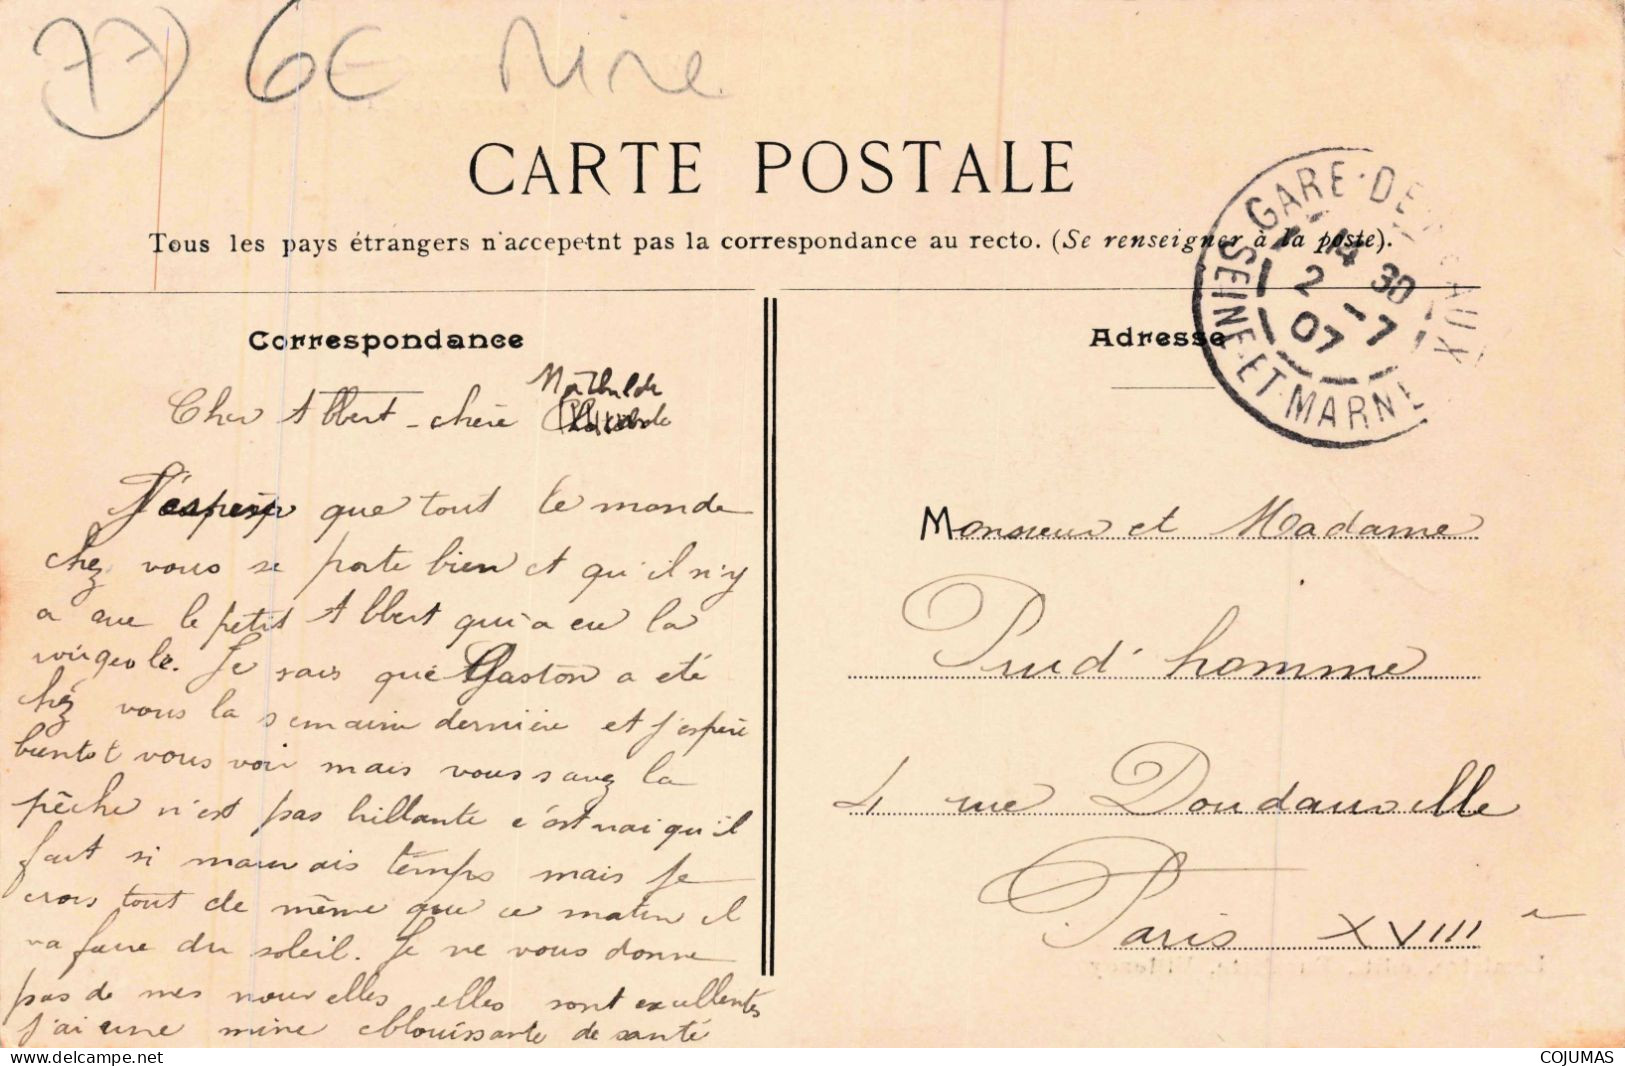 77 6€ Rire
CARTE POSTALE
Tous les pays étrangers n'accepetnt pas la correspondance au recto. (Se renseigner à la poste).
GARE · DE AUX
SEINE-ET-MARNE
14 30
2 -7
07
Correspondance
Adresse
Mathilde
Cher Albert - chère
J'espère que tout le monde
chez vous se porte bien et qu'il n'y
a que le petit Albert qui a eu la
rougeole. Je sais que Gaston a été
chez vous la semaine dernière et j'espère
bientot vous voir mais vous savez la
pêche n'est pas brillante c'est vrai qu'il
fait si mauvais temps mais je
crois tout de même que ce matin il
va faire du soleil. Je ne vous donne
pas de mes nouvelles elles sont excellentes
j'ai une mine éblouissante de santé
Monsieur et Madame
Prud'homme
4 rue Doudauville
Paris XVIIIe
COJUMAS
delcampe.net